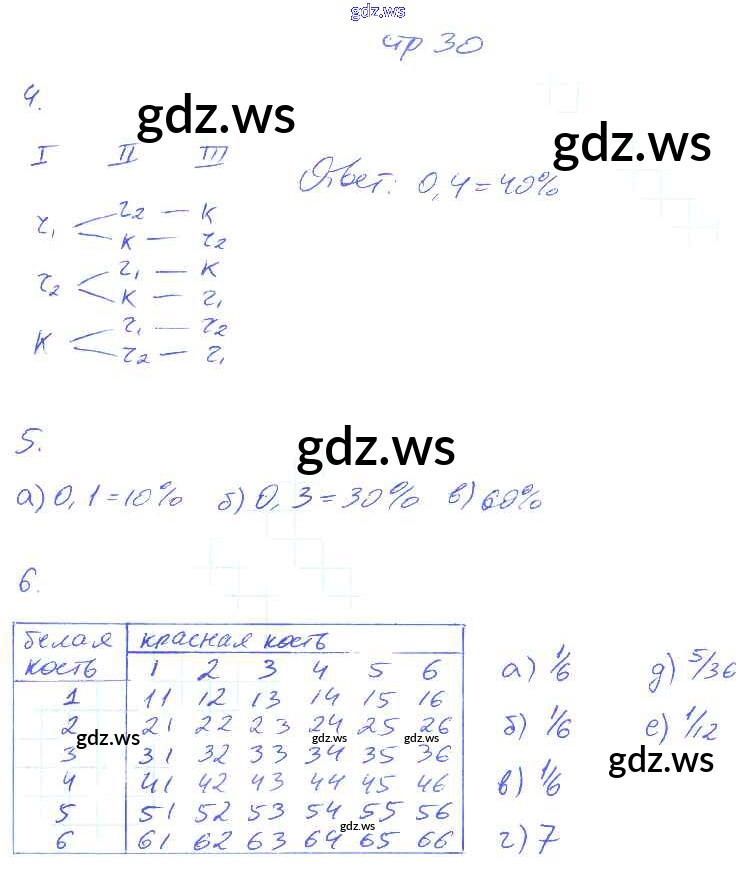 gdz.ws
стр 30
4.
gdz.ws
gdz.ws
I II III
Ответ: 0,4=40%
г₁ г₂ — к
к — г₂
г₂ г₁ — к
к — г₁
к г₁ — г₂
г₂ — г₁
5.
gdz.ws
а) 0,1=10% б) 0,3=30% в) 60%
6.
белая кость красная кость
1 2 3 4 5 6
1 11 12 13 14 15 16
2 21 22 23 24 25 26
3 31 32 33 34 35 36
4 41 42 43 44 45 46
5 51 52 53 54 55 56
6 61 62 63 64 65 66
а) 1/6 д) 5/36
б) 1/6 е) 1/12
в) 1/6
г) 7
gdz.ws
gdz.ws
gdz.ws
gdz.ws
gdz.ws